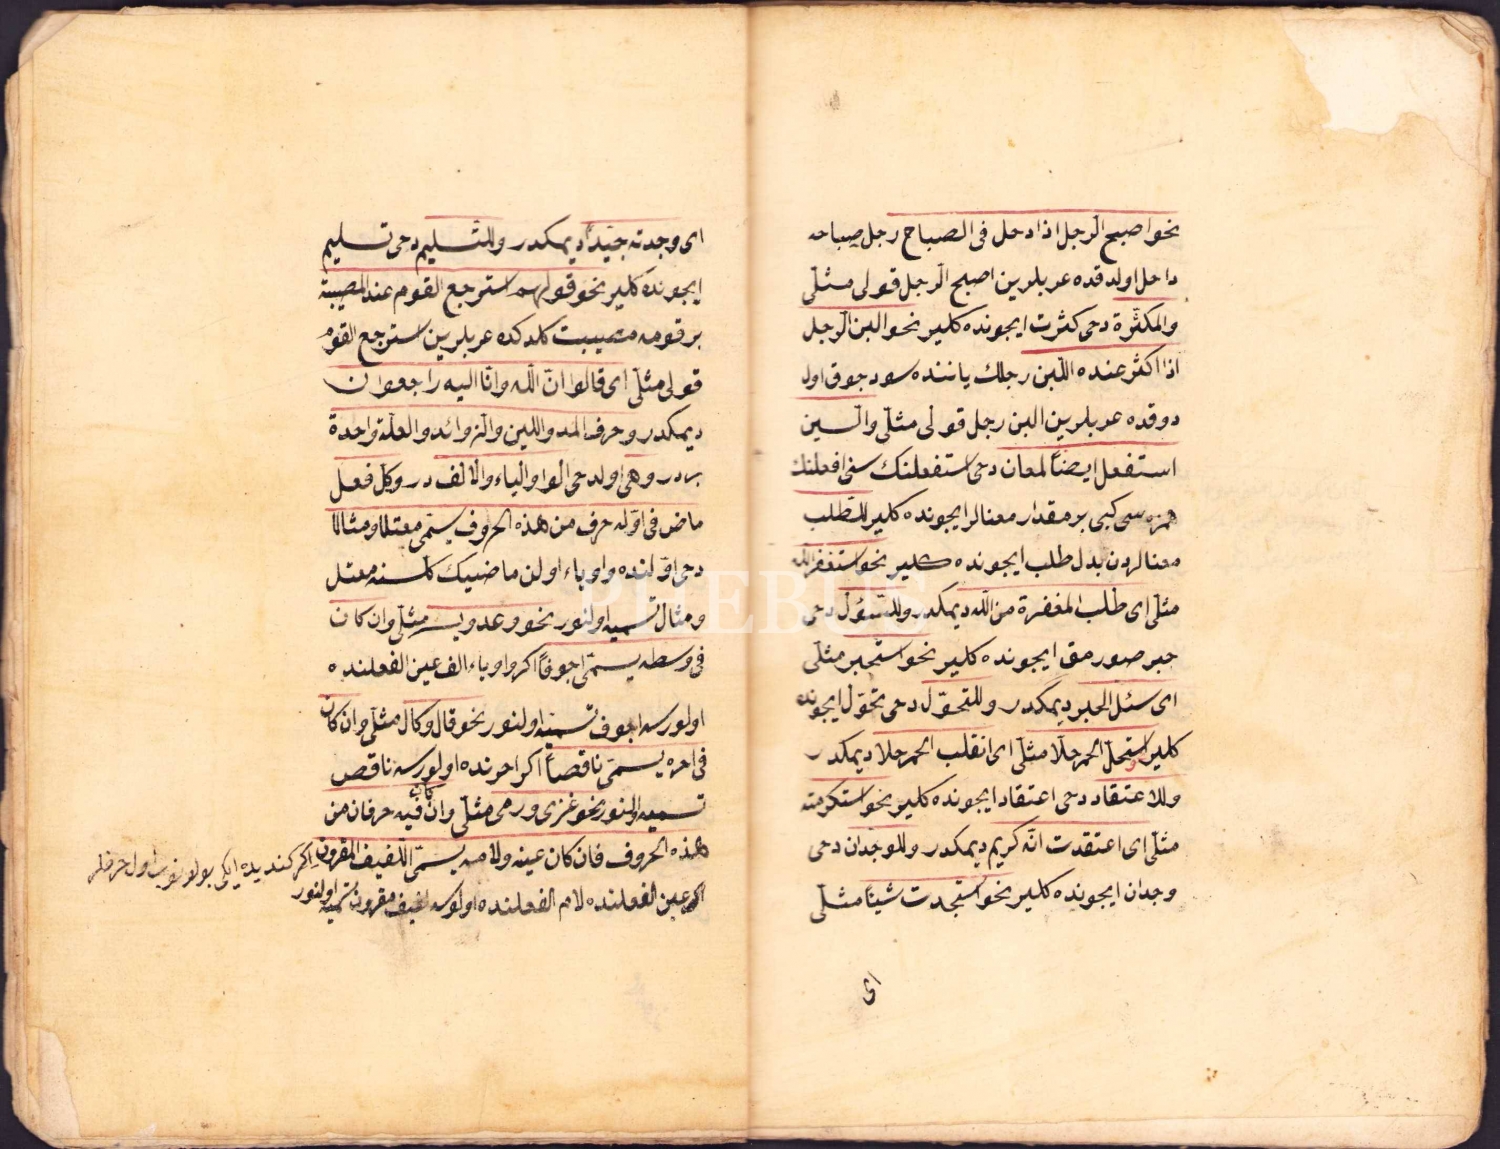 نحو اصبح الرجل اذا دخل فى الصباح رجل صباحه
داخل اولدقده عربلرين اصبح الرجل قولى مثلّى
والمكثرة دخى كثرت ايچونده كلير نحو البن الرجل
اذا اكثر عنده اللبن رجلك ياننده سود چوق اول
دوقده عربلرين البن رجل قولى مثلّى والسين
استفعل ايضاً لمعان دخى استفعلنك سنى افعلنك
همزه سى كبى بر مقدار معنالر ايچونده كلير للطلب
معنالردن بدل طلب ايچونده كلير نحو استغفر الله
مثلّى اى طلب المغفرة من الله ديمكدر وللسؤل دخى
خبر صورمق ايچونده كلير نحو استخبر مثلّى
اى سئل الخبر ديمكدر وللتحوّل دخى تحوّل ايچونده
كلير استحلّ الخمر خلّا مثلّى اى انقلب الخمر خلا ديمكدر
وللاعتقاد دخى اعتقاد ايچونده كلير نحو استكرمته
مثلّى اى اعتقدت انّه كريم ديمكدر وللوجدان دخى
وجدان ايچونده كلير نحو استجدت شيئاً مثلّى
اى
اى وجدته جيّداً ديمكدر وللتسليم دخى تسليم
ايچونده كلير نحو قولهم استرجع القوم عند المصيبة
بر قومه مصيبت كلدكده عربلرين استرجع القوم
قولى مثلّى اى قالوا انّ الله وانّا اليه راجعون
ديمكدر وحرف المد واللين والزوائد والعلة واحدة
بردر وهى اولدخى الواو والياء والالف در وكل فعل
ماض فى اوّله حرف من هذه الحروف يسمّى معتلا ومثالا
دخى اوّلنده واو ياء اولن ماضينك كلسنه معتل
ومثال تسميه اولنور نحو وعد ويسر مثلّى وان كان
فى وسطه يسمّى اجوفاً اكر واو ياء الف عين الفعلنده
اولورسه اجوف تسميه اولنور نحو قال وكال مثلّى وان كان
فى اخره يسمّى ناقصاً اكر اخرنده اولورسه ناقص
تسميه اولنور نحو غزى ورمى مثلّى وان كان فيه حرفان من
هذه الحروف فان كان عينه ولامه يسمّى اللفيف المقرون اكر كنديده ايكى بولونوب اول حرفلر
اكر عين الفعلنده لام الفعلنده اولورسه لفيف مقرون تسميه اولنور
PHEBUS